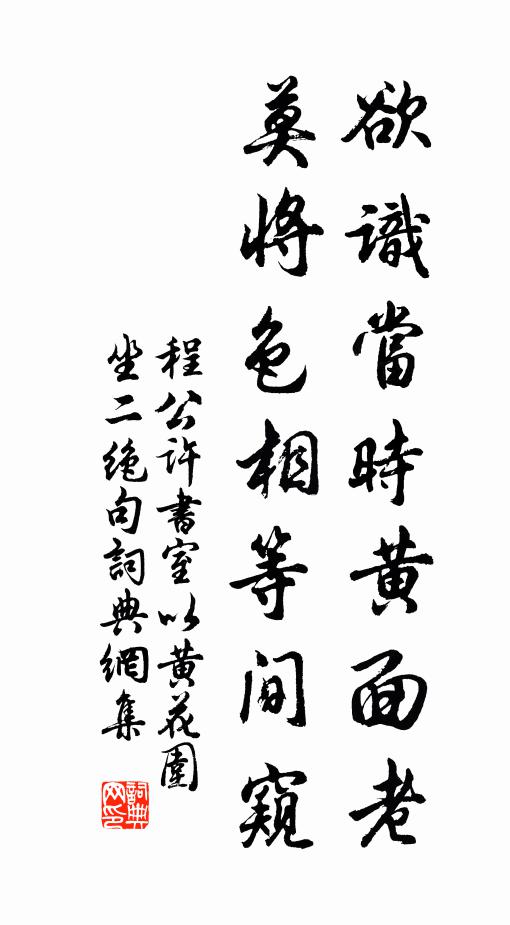 欲識當時黃面老
莫將色相等間窺
程公許書室以黃花圍
坐二絕句詞典網集
詞典网印